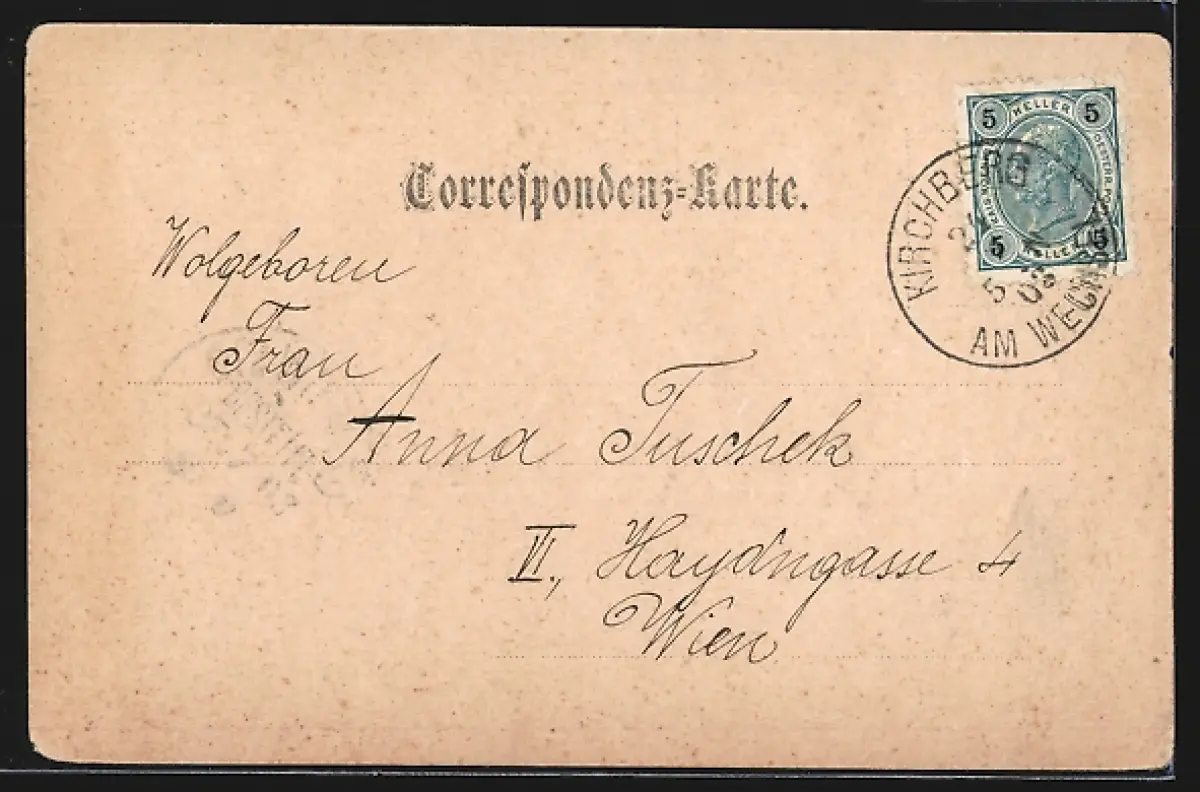 Correspondenz-Karte.
5 HELLER 5
5 HELLER 5
KIRCHBERG
AM WECHSEL
Wolgeboren
Frau
Anna Tuschek
VI., Haydngasse 4
Wien